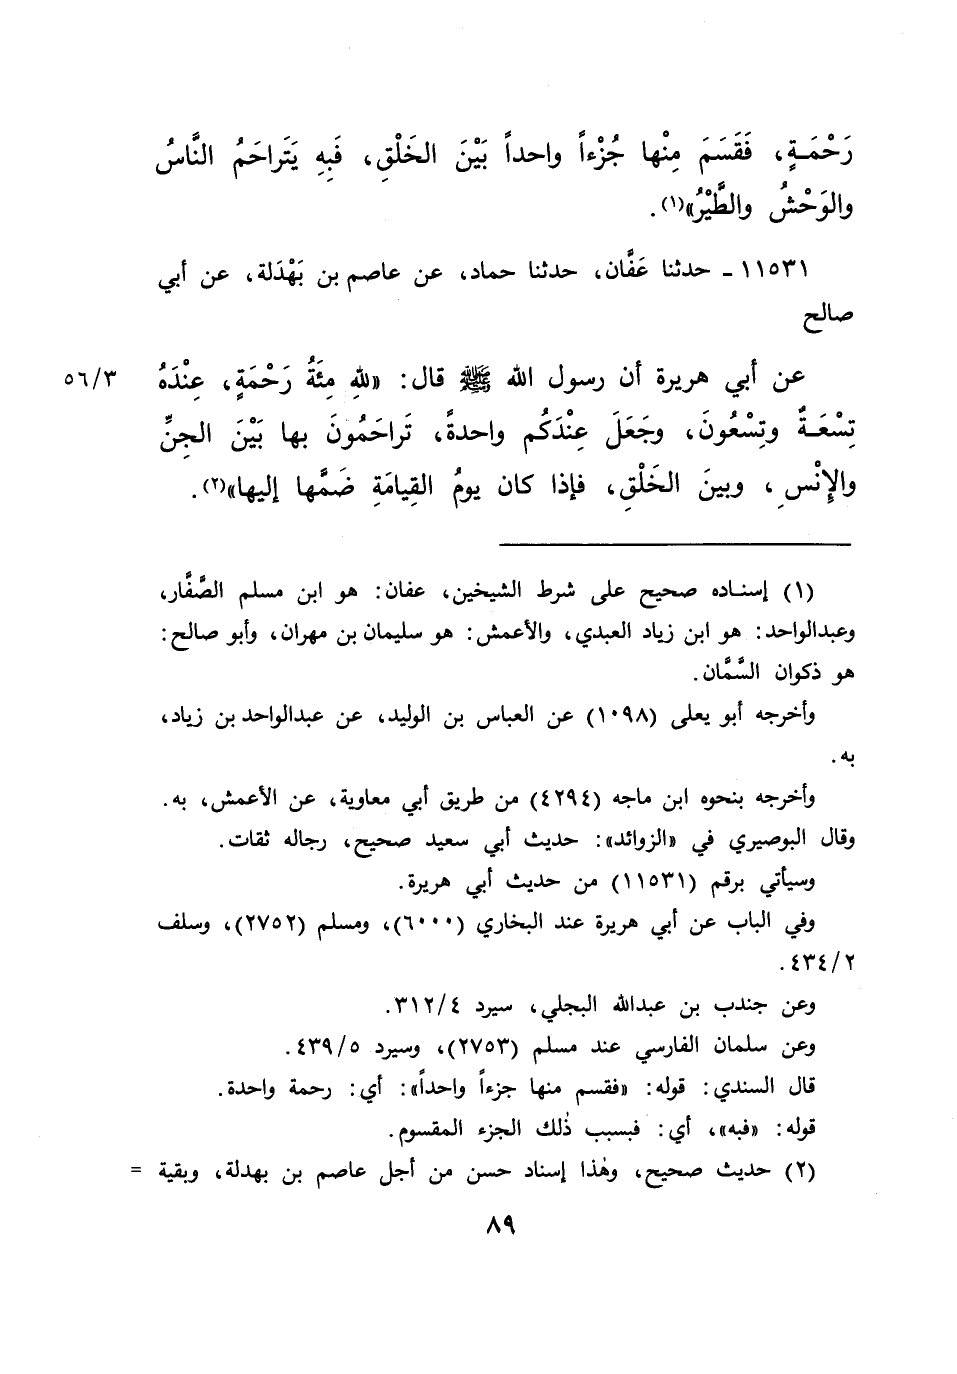 رَحْمَـةٍ، فَقَسَمَ مِنْها جُزْءاً واحداً بَيْنَ الخَلْقِ، فَبِهِ يَتَراحَمُ النَّاسُ
والوَحْشُ والطَّيْرُ»(١).
١١٥٣١ ـ حدثنا عَفَّان، حدثنا حماد، عن عاصم بن بَهْدَلة، عن أبي
صالح
عن أبي هريرة أن رسول الله ﷺ قال: «للهِ مِئَةُ رَحْمَةٍ، عِنْدَهُ ٥٦/٣
تِسْعَـةٌ وتِسْعُونَ، وجَعَلَ عِنْدَكُم واحدةً، تَراحَمُونَ بها بَيْنَ الجِنِّ
والإِنْسِ، وبينَ الخَلْقِ، فإذا كان يومُ القِيامَةِ ضَمَّها إليها»(٢).
(١) إسنـاده صحيح على شرط الشيخين، عفان: هو ابن مسلم الصَّفَّار،
وعبدالواحد: هو ابن زياد العبدي، والأعمش: هو سليمان بن مهران، وأبو صالح:
هو ذكوان السَّمَّان.
وأخرجه أبو يعلى (١٠٩٨) عن العباس بن الوليد، عن عبدالواحد بن زياد،
به.
وأخرجه بنحوه ابن ماجه (٤٢٩٤) من طريق أبي معاوية، عن الأعمش، به.
وقال البوصيري في «الزوائد»: حديث أبي سعيد صحيح، رجاله ثقات.
وسيأتي برقم (١١٥٣١) من حديث أبي هريرة.
وفي الباب عن أبي هريرة عند البخاري (٦٠٠٠)، ومسلم (٢٧٥٢)، وسلف
٤٣٤/٢.
وعن جندب بن عبدالله البجلي، سيرد ٣١٢/٤.
وعن سلمان الفارسي عند مسلم (٢٧٥٣)، وسيرد ٤٣٩/٥.
قال السندي: قوله: «فقسم منها جزءاً واحداً»: أي: رحمة واحدة.
قوله: «فبه»، أي: فبسبب ذٰلك الجزء المقسوم.
(٢) حديث صحيح، وهٰذا إسناد حسن من أجل عاصم بن بهدلة، وبقية =
٨٩